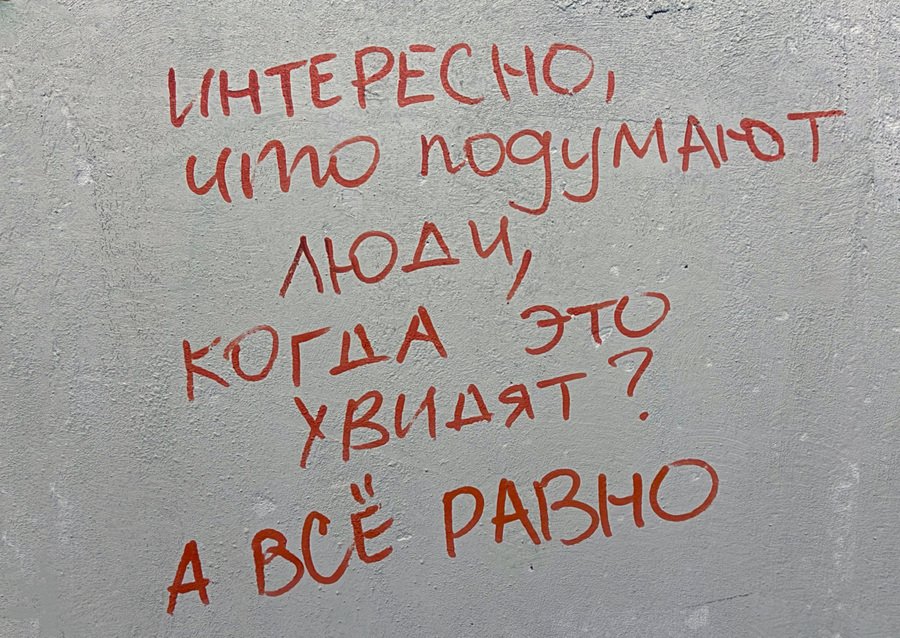 ИНТЕРЕСНО,
что подумают
люди,
когда это
увидят?
А ВСЁ РАВНО